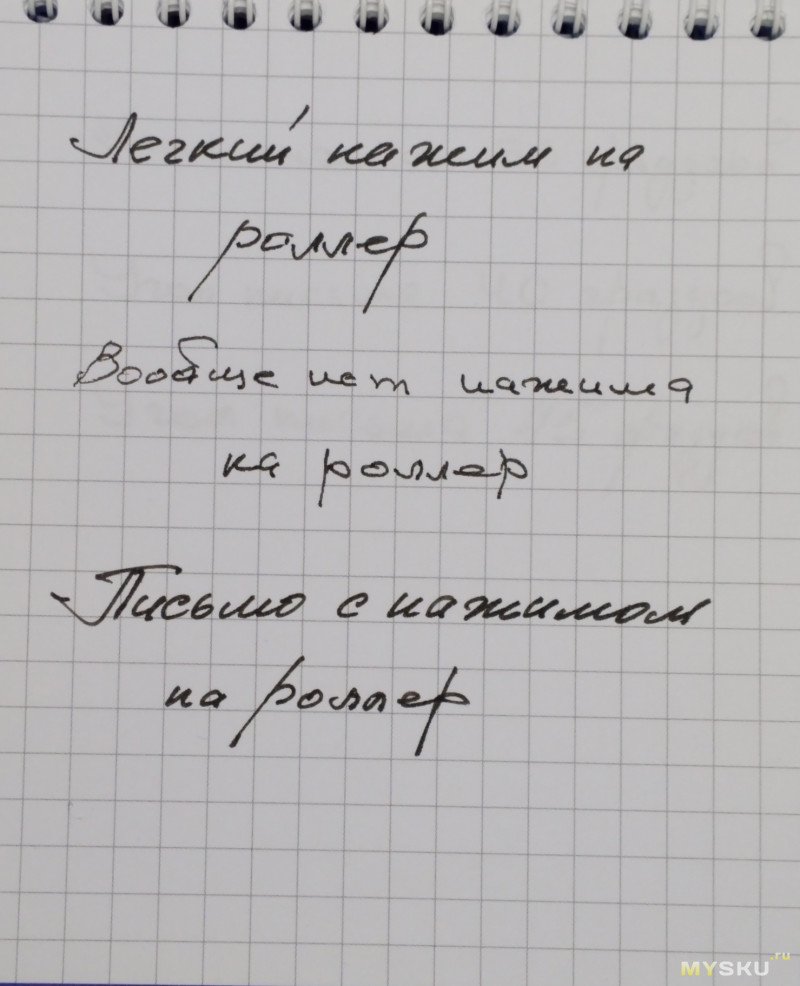 Легкий нажим на
роллер
Вообще нет нажима
на роллер
Письмо с нажимом
на роллер
MYSKU.ru